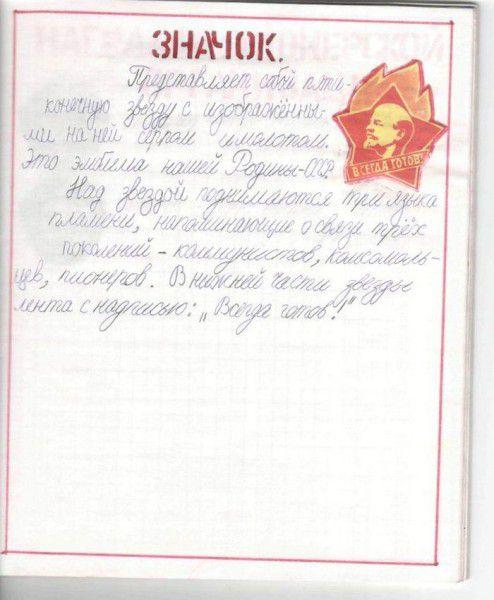 ЗНАЧОК.
Представляет собой пяти-
конечную звезду с изображённы-
ми на ней серпом и молотом.
Это эмблема нашей Родины-СССР.
ВСЕГДА ГОТОВ!
Над звездой поднимаются три языка
пламени, напоминающие о связи трёх
поколений - коммунистов, комсомоль-
цев, пионеров. В нижней части звезды
лента с надписью: „Всегда готов!"